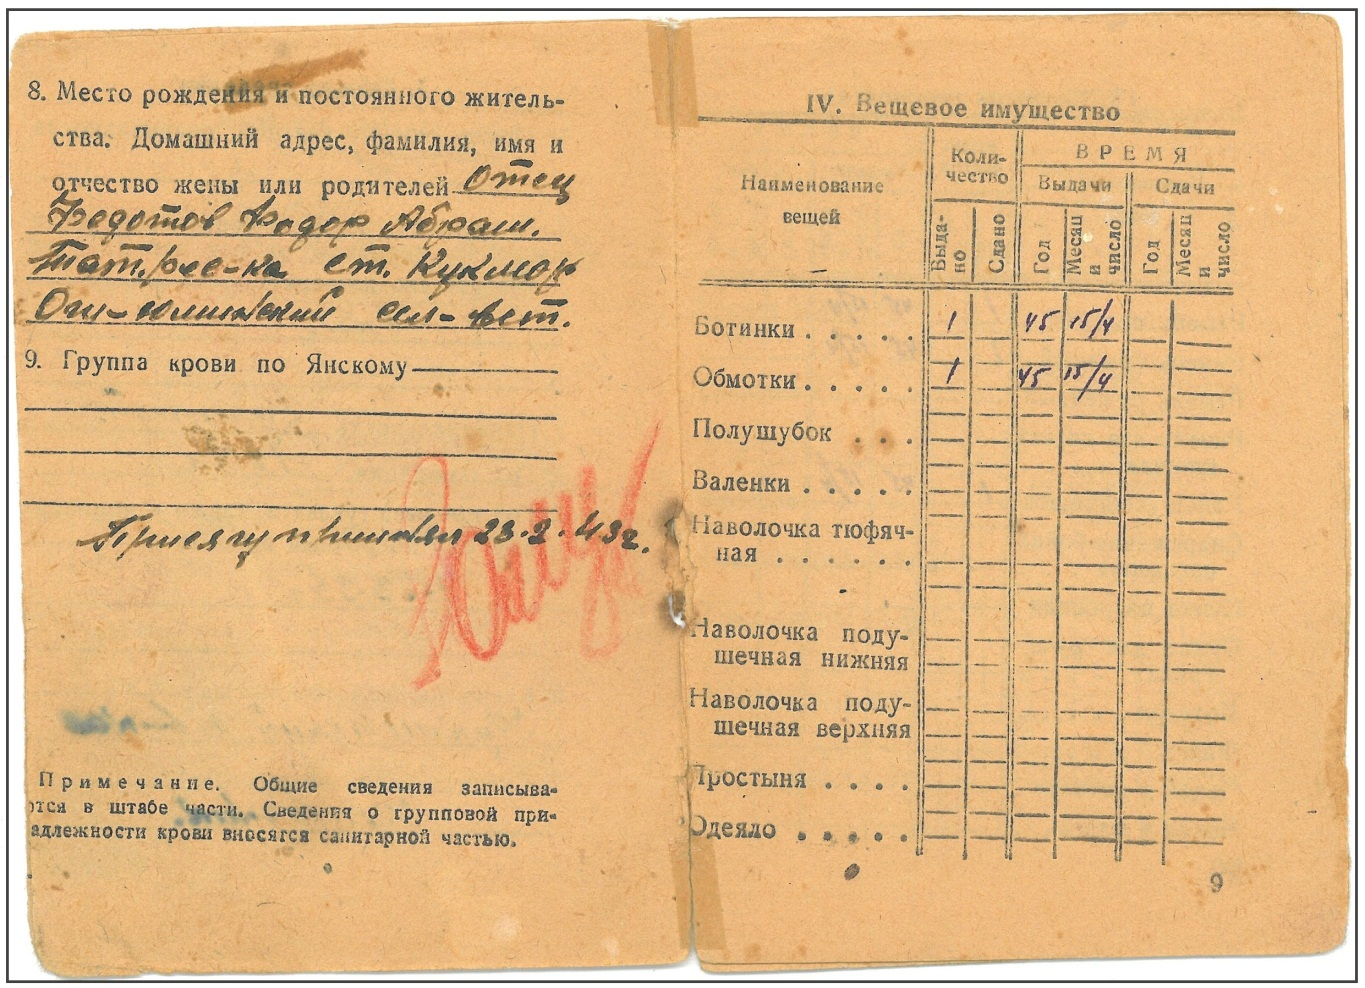 8. Место рождения и постоянного житель-
ства. Домашний адрес, фамилия, имя и
отчество жены или родителей Отец
Федотов Федор Абрам.
Тат. рес-ка ст. Кукмор
сел-вет.
9. Группа крови по Янскому
Присягу принял 23.2.43г.
Примечание. Общие сведения записыва-
ются в штабе части. Сведения о групповой при-
адлежности крови вносятся санитарной частью.
IV. Вещевое имущество
Наименование
вещей
Коли-
чество
ВРЕМЯ
Выдачи
Сдачи
Выда-
но
Сдано
Год
Месяц
и
число
Год
Месяц
и
число
Ботинки . . . . . 1 45 15/4
Обмотки . . . . . 1 45 15/4
Полушубок . . .
Валенки . . . . .
Наволочка тюфяч-
ная . . . . . .
Наволочка поду-
шечная нижняя
Наволочка поду-
шечная верхняя
Простыня . . . .
Одеяло . . . . .
9